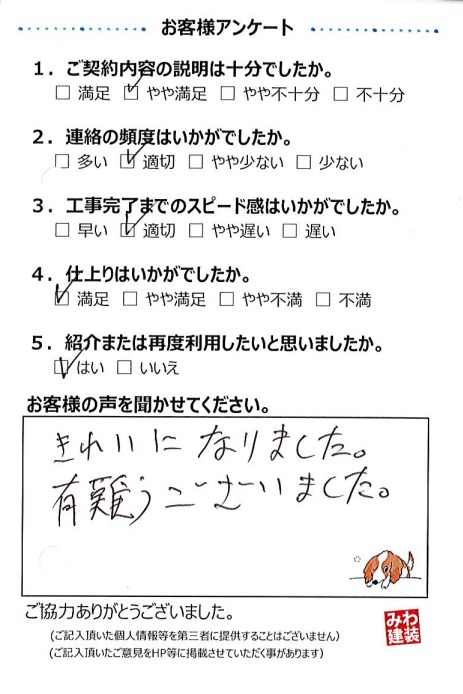 お客様アンケート
1．ご契約内容の説明は十分でしたか。
□ 満足 ☑ やや満足 □ やや不十分 □ 不十分
2．連絡の頻度はいかがでしたか。
□ 多い ☑ 適切 □ やや少ない □ 少ない
3．工事完了までのスピード感はいかがでしたか。
□ 早い ☑ 適切 □ やや遅い □ 遅い
4．仕上りはいかがでしたか。
☑ 満足 □ やや満足 □ やや不満 □ 不満
5．紹介または再度利用したいと思いましたか。
☑ はい □ いいえ
お客様の声を聞かせてください。
きれいになりました。
有難うございました。
ご協力ありがとうございました。
みわ
建装
(ご記入頂いた個人情報等を第三者に提供することはございません)
(ご記入頂いたご意見をHP等に掲載させていただく事があります)